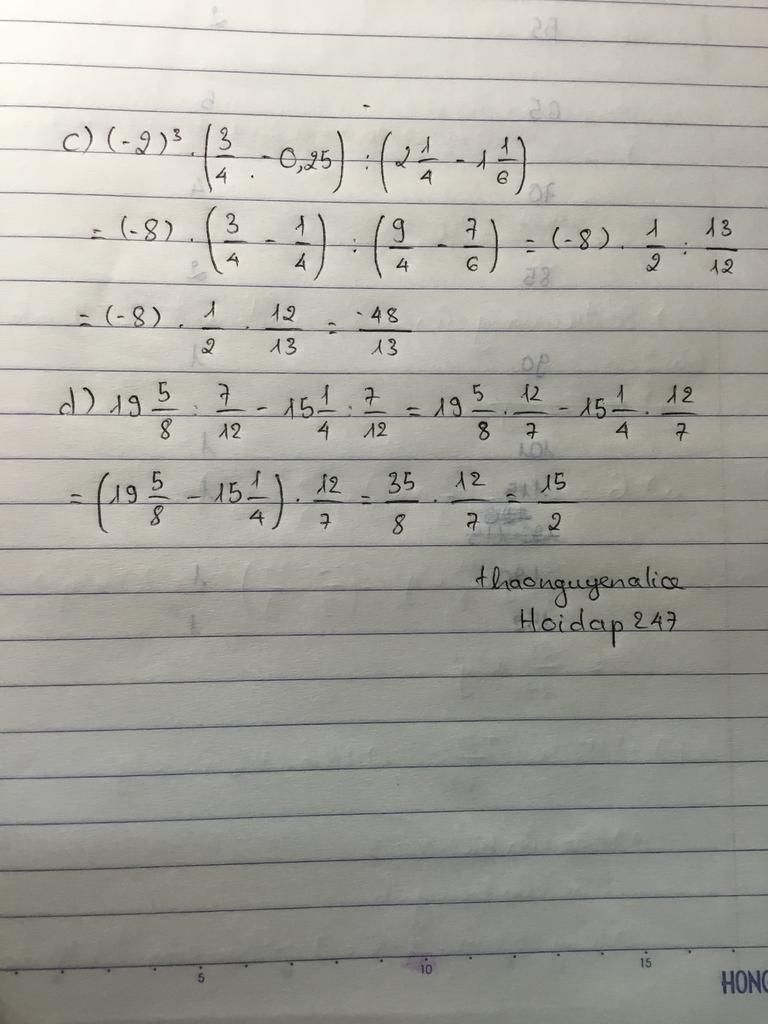 c) (-2)³ · (3/4 - 0,25) : (2 1/4 - 1 1/6)
= (-8) · (3/4 - 1/4) : (9/4 - 7/6) = (-8) · 1/2 : 13/12
= (-8) · 1/2 · 12/13 = -48/13
d) 19 5/8 : 7/12 - 15 1/4 : 7/12 = 19 5/8 · 12/7 - 15 1/4 · 12/7
= (19 5/8 - 15 1/4) · 12/7 = 35/8 · 12/7 = 15/2
thaonguyenalice
Hoidap 247
5 10 15
HONG